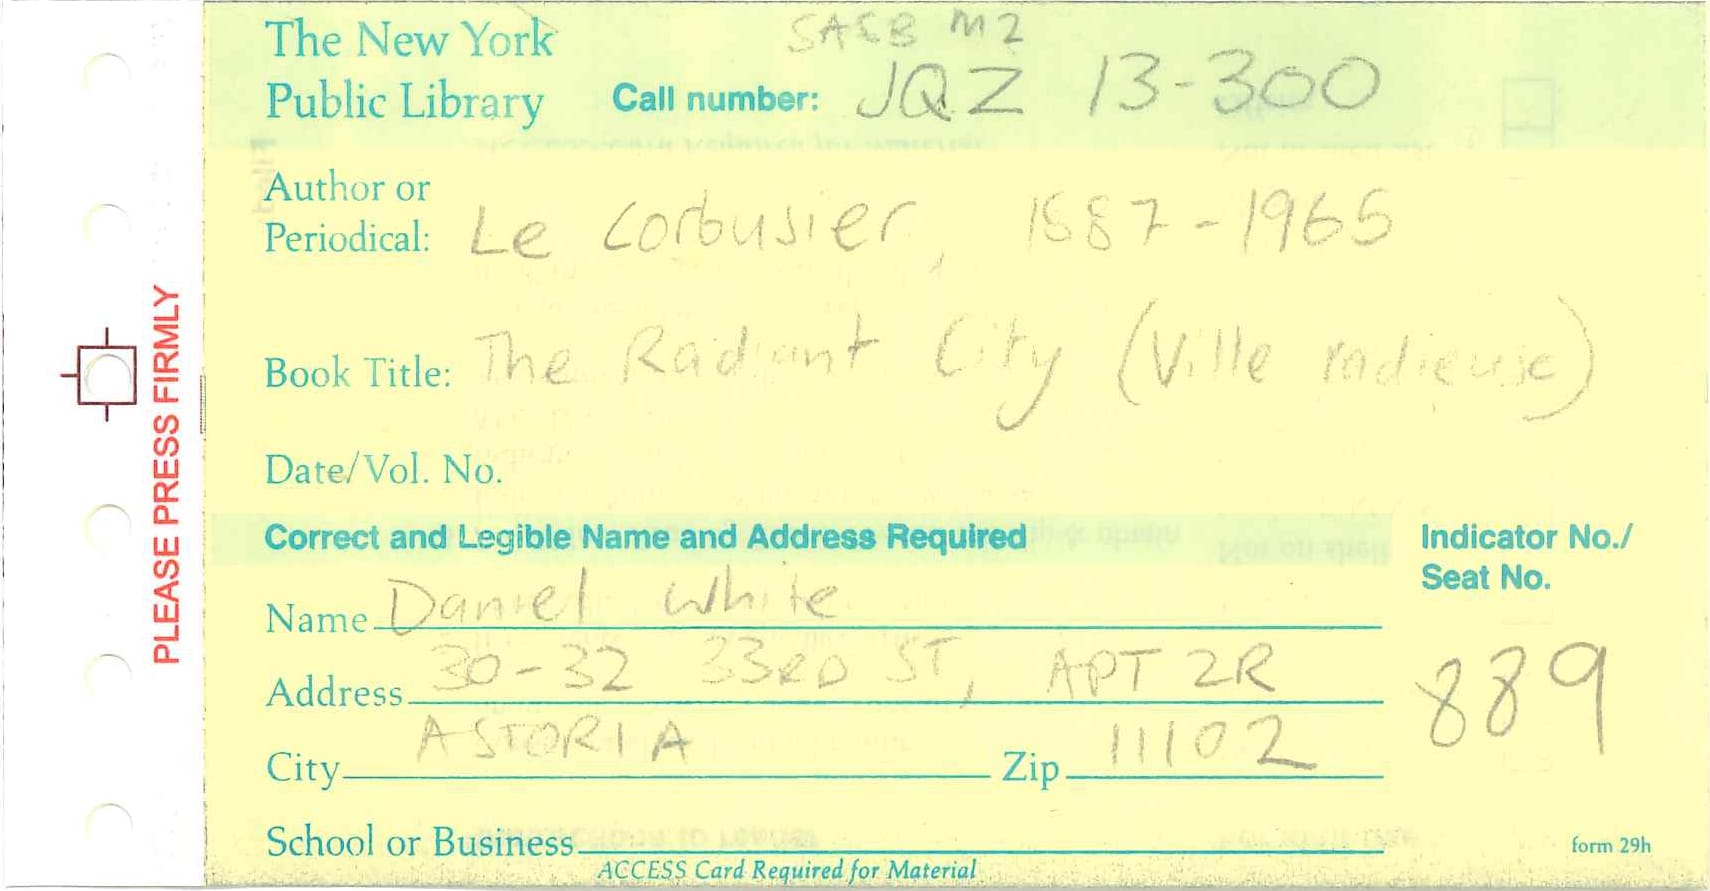 The New York
Public Library
SASB M2
Call number: JQZ 13-300
Author or
Periodical: Le Corbusier, 1887-1965
Book Title: The Radiant City (Ville radieuse)
Date/Vol. No.
Correct and Legible Name and Address Required
Indicator No./
Seat No.
Name Daniel White
Address 30-32 33RD ST, APT 2R
889
City ASTORIA Zip 11102
School or Business
form 29h
ACCESS Card Required for Material
PLEASE PRESS FIRMLY